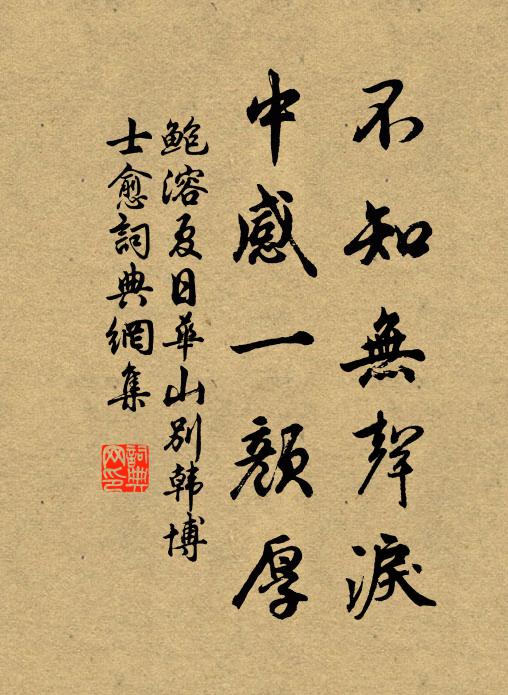 不知無聲淚
中感一顏厚
鮑溶夏日華山別韩博
士愈詞典網集
詞典
网印